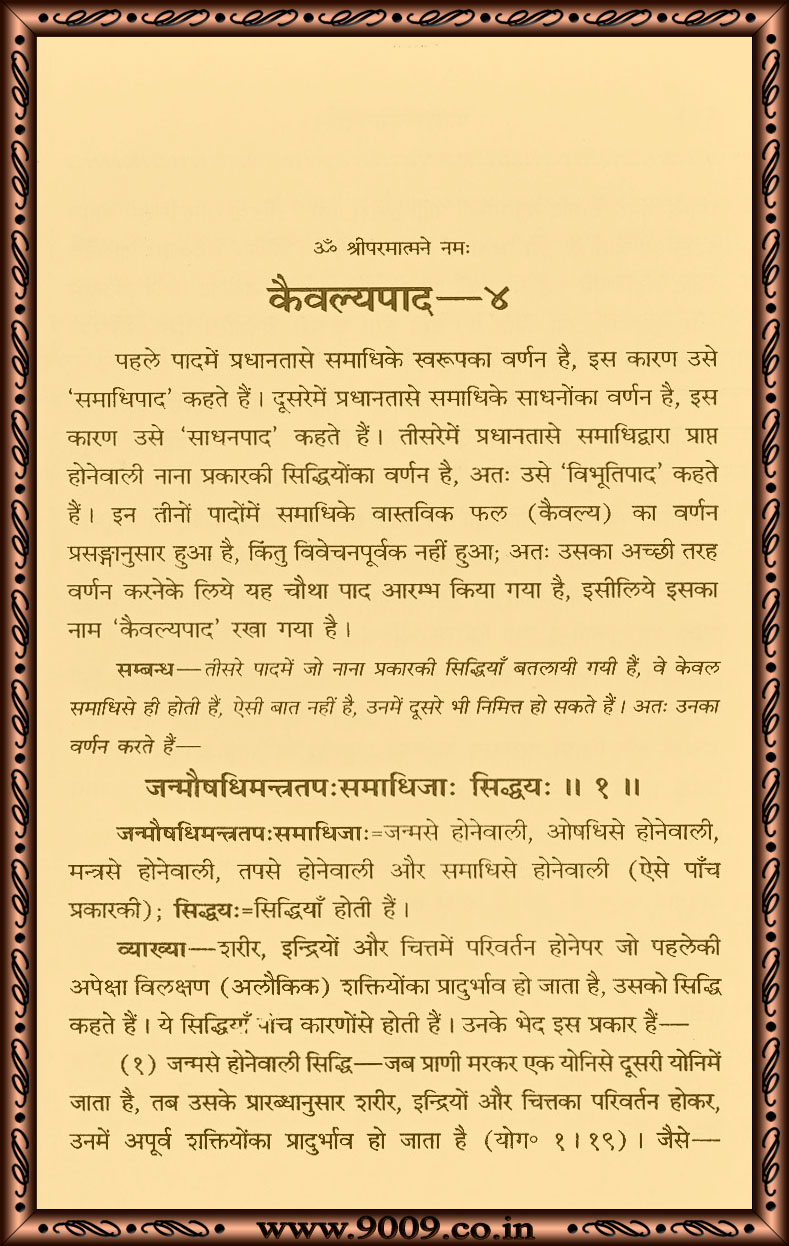 ॐ श्रीपरमात्मने नमः
कैवल्यपाद—४
पहले पादमें प्रधानतासे समाधिके स्वरूपका वर्णन है, इस कारण उसे
‘समाधिपाद’ कहते हैं। दूसरेमें प्रधानतासे समाधिके साधनोंका वर्णन है, इस
कारण उसे ‘साधनपाद’ कहते हैं। तीसरेमें प्रधानतासे समाधिद्वारा प्राप्त
होनेवाली नाना प्रकारकी सिद्धियोंका वर्णन है, अतः उसे ‘विभूतिपाद’ कहते
हैं। इन तीनों पादोंमें समाधिके वास्तविक फल (कैवल्य) का वर्णन
प्रसङ्गानुसार हुआ है, किंतु विवेचनपूर्वक नहीं हुआ; अतः उसका अच्छी तरह
वर्णन करनेके लिये यह चौथा पाद आरम्भ किया गया है, इसीलिये इसका
नाम ‘कैवल्यपाद’ रखा गया है।
सम्बन्ध—तीसरे पादमें जो नाना प्रकारकी सिद्धियाँ बतलायी गयी हैं, वे केवल
समाधिसे ही होती हैं, ऐसी बात नहीं है, उनमें दूसरे भी निमित्त हो सकते हैं। अतः उनका
वर्णन करते हैं—
जन्मौषधिमन्त्रतपःसमाधिजाः सिद्धयः ॥ १ ॥
जन्मौषधिमन्त्रतपःसमाधिजाः=जन्मसे होनेवाली, ओषधिसे होनेवाली,
मन्त्रसे होनेवाली, तपसे होनेवाली और समाधिसे होनेवाली (ऐसे पाँच
प्रकारकी); सिद्धयः=सिद्धियाँ होती हैं।
व्याख्या—शरीर, इन्द्रियों और चित्तमें परिवर्तन होनेपर जो पहलेकी
अपेक्षा विलक्षण (अलौकिक) शक्तियोंका प्रादुर्भाव हो जाता है, उसको सिद्धि
कहते हैं। ये सिद्धियाँ पांच कारणोंसे होती हैं। उनके भेद इस प्रकार हैं—
(१) जन्मसे होनेवाली सिद्धि—जब प्राणी मरकर एक योनिसे दूसरी योनिमें
जाता है, तब उसके प्रारब्धानुसार शरीर, इन्द्रियों और चित्तका परिवर्तन होकर,
उनमें अपूर्व शक्तियोंका प्रादुर्भाव हो जाता है (योग० १।१९)। जैसे—
www.9009.co.in